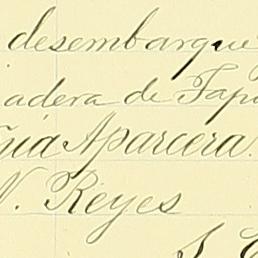 desembarque
adera de Tapa
gia Aparcera.
N. Reyes